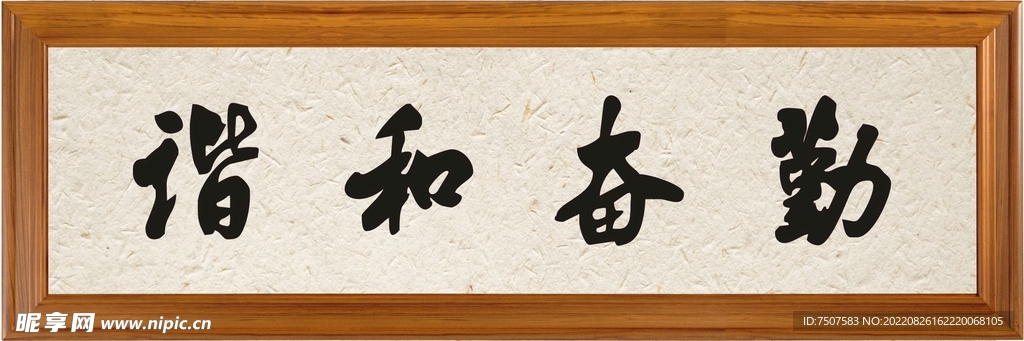 谐和奋勤
昵享网 www.nipic.cn
ID:7507583 NO:20220826162220068105